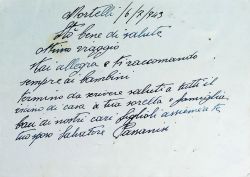 Mortelli 16/7/943
Sto bene di salute
viaggio
Stai allegra e ti raccomando
sempre ai bambini
Termino da scrivere saluti a tutti il
di casa a tua sorella e famiglia
baci di nostri cari figlioli assieme te
tuo sposo Salvatore